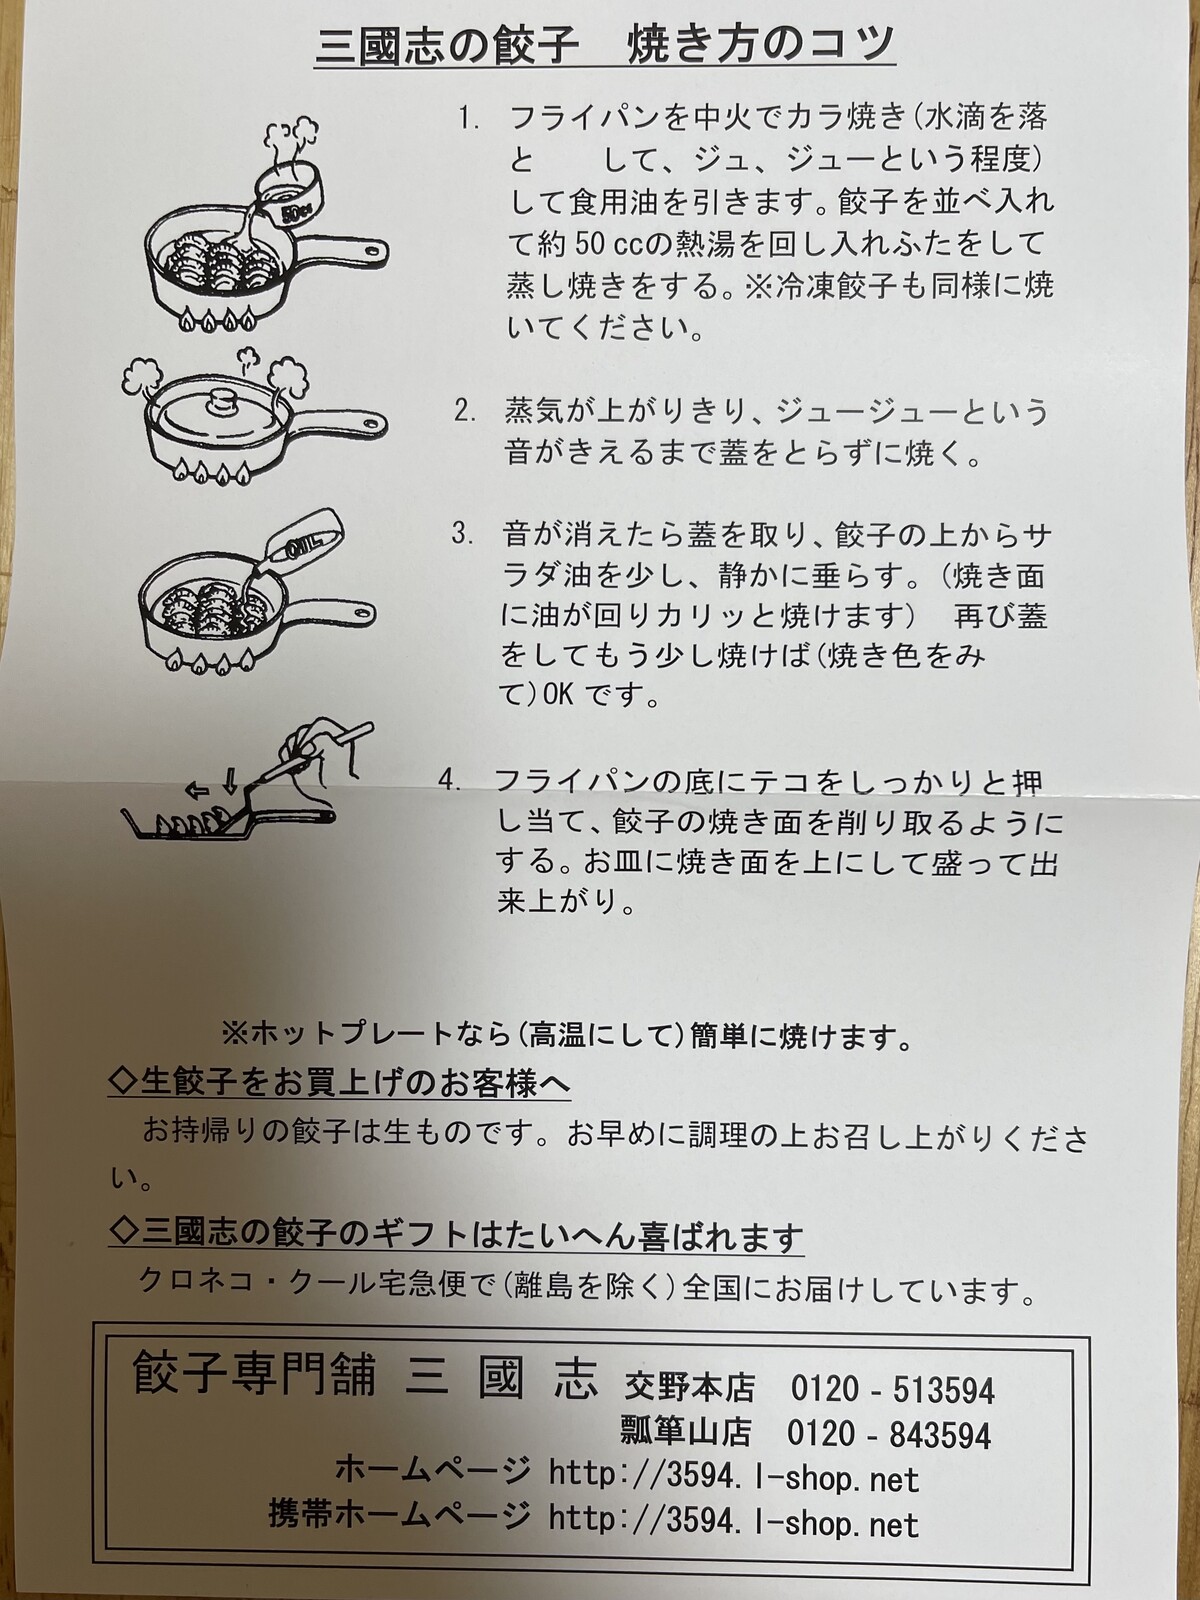 三國志の餃子　焼き方のコツ
1. フライパンを中火でカラ焼き(水滴を落
と　　して、ジュ、ジューという程度)
して食用油を引きます。餃子を並べ入れ
て約50ccの熱湯を回し入れふたをして
蒸し焼きをする。※冷凍餃子も同様に焼
いてください。
50cc
2. 蒸気が上がりきり、ジュージューという
音がきえるまで蓋をとらずに焼く。
3. 音が消えたら蓋を取り、餃子の上からサ
ラダ油を少し、静かに垂らす。(焼き面
に油が回りカリッと焼けます)　再び蓋
をしてもう少し焼けば(焼き色をみ
て)OKです。
OIL
4. フライパンの底にテコをしっかりと押
し当て、餃子の焼き面を削り取るように
する。お皿に焼き面を上にして盛って出
来上がり。
※ホットプレートなら(高温にして)簡単に焼けます。
◇生餃子をお買上げのお客様へ
お持帰りの餃子は生ものです。お早めに調理の上お召し上がりくださ
い。
◇三國志の餃子のギフトはたいへん喜ばれます
クロネコ・クール宅急便で(離島を除く)全国にお届けしています。
餃子専門舗 三 國 志 交野本店　0120-513594
瓢箪山店　0120-843594
ホームページ http://3594.l-shop.net
携帯ホームページ http://3594.l-shop.net